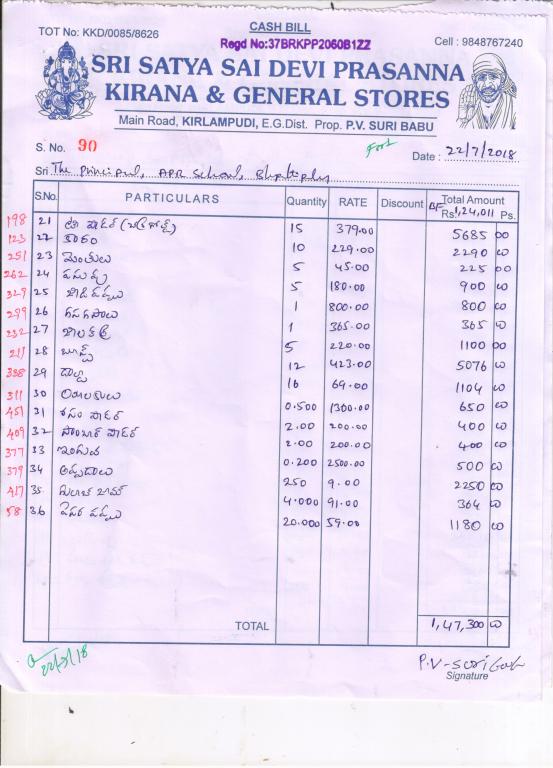 CASH BILL
TOT No: KKD/0085/8626
Regd No:37BRKPP2060B1ZZ
Cell : 9848767240
SRI SATYA SAI DEVI PRASANNA
KIRANA & GENERAL STORES
Main Road, KIRLAMPUDI, E.G.Dist. Prop. P.V. SURI BABU
S. No. 90
Date : 22/7/2018
Sri The Principal, APR School,
S.No. PARTICULARS Quantity RATE Discount Total Amount
BF Rs. 1,24,011 Ps.
198 21 టీ పౌడర్ 15 379.00 5685 00
123 22 కారం 10 229.00 2290 00
251 23 మెంతులు 5 45.00 225 00
262 24 పసుపు 5 180.00 900 00
329 25 జీడిపప్పు 1 800.00 800 00
299 26 గసగసాలు 1 365.00 365 00
232 27 జీలకర్ర 5 220.00 1100 00
211 28 బూస్ట్ 12 423.00 5076 00
338 29 డాల్డా 16 69.00 1104 00
311 30 యాలకులు 0.500 1300.00 650 00
451 31 రసం పౌడర్ 2.00 200.00 400 00
409 32 సాంబార్ పౌడర్ 2.00 200.00 400 00
377 33 ఇంగువ 0.200 2500.00 500 00
379 34 అప్పడాలు 250 9.00 2250 00
417 35 గులాబ్ జామ్ 4.000 91.00 364 00
58 36 పెసర పప్పు 20.000 59.00 1180 00
TOTAL 1,47,300 00
22/7/18
P.V-Suri Babu
Signature